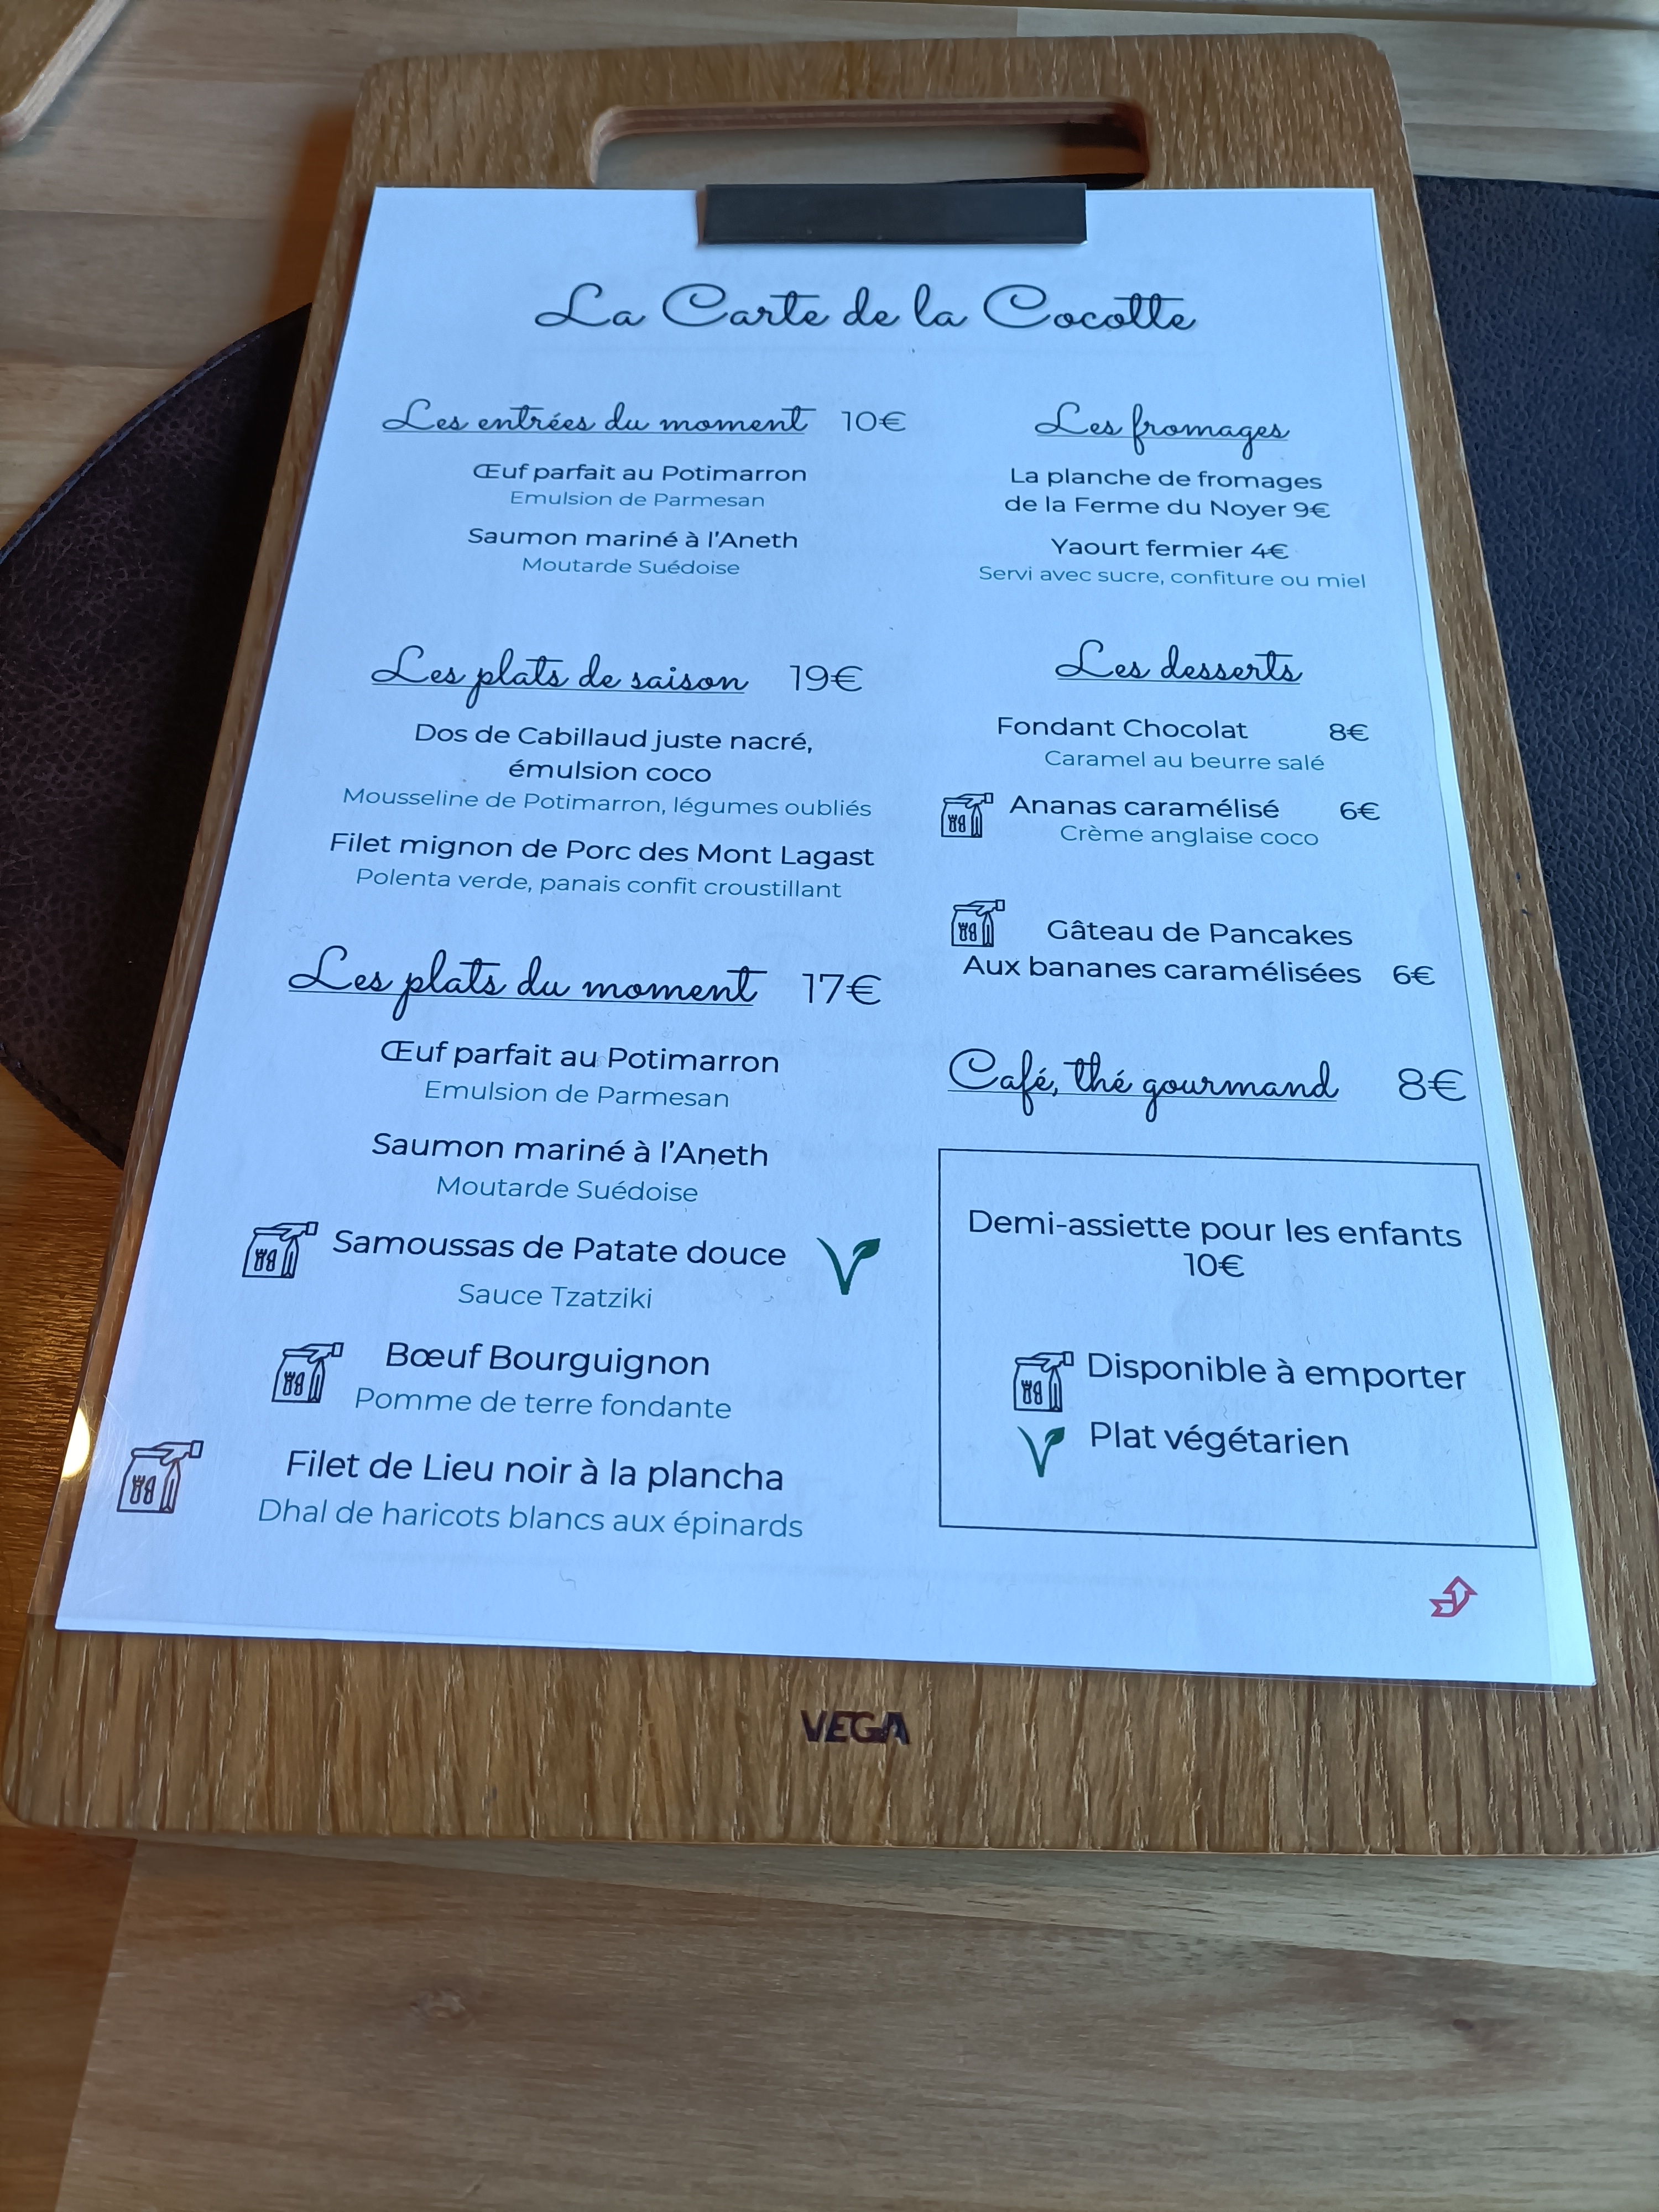 La Carte de la Cocotte
Les entrées du moment 10€
Œuf parfait au Potimarron
Emulsion de Parmesan
Saumon mariné à l'Aneth
Moutarde Suédoise
Les plats de saison 19€
Dos de Cabillaud juste nacré,
émulsion coco
Mousseline de Potimarron, légumes oubliés
Filet mignon de Porc des Mont Lagast
Polenta verde, panais confit croustillant
Les plats du moment 17€
Œuf parfait au Potimarron
Emulsion de Parmesan
Saumon mariné à l'Aneth
Moutarde Suédoise
Samoussas de Patate douce
Sauce Tzatziki
Bœuf Bourguignon
Pomme de terre fondante
Filet de Lieu noir à la plancha
Dhal de haricots blancs aux épinards
Les fromages
La planche de fromages
de la Ferme du Noyer 9€
Yaourt fermier 4€
Servi avec sucre, confiture ou miel
Les desserts
Fondant Chocolat 8€
Caramel au beurre salé
Ananas caramélisé 6€
Crème anglaise coco
Gâteau de Pancakes
Aux bananes caramélisées 6€
Café, thé gourmand 8€
Demi-assiette pour les enfants
10€
Disponible à emporter
Plat végétarien
VEGA